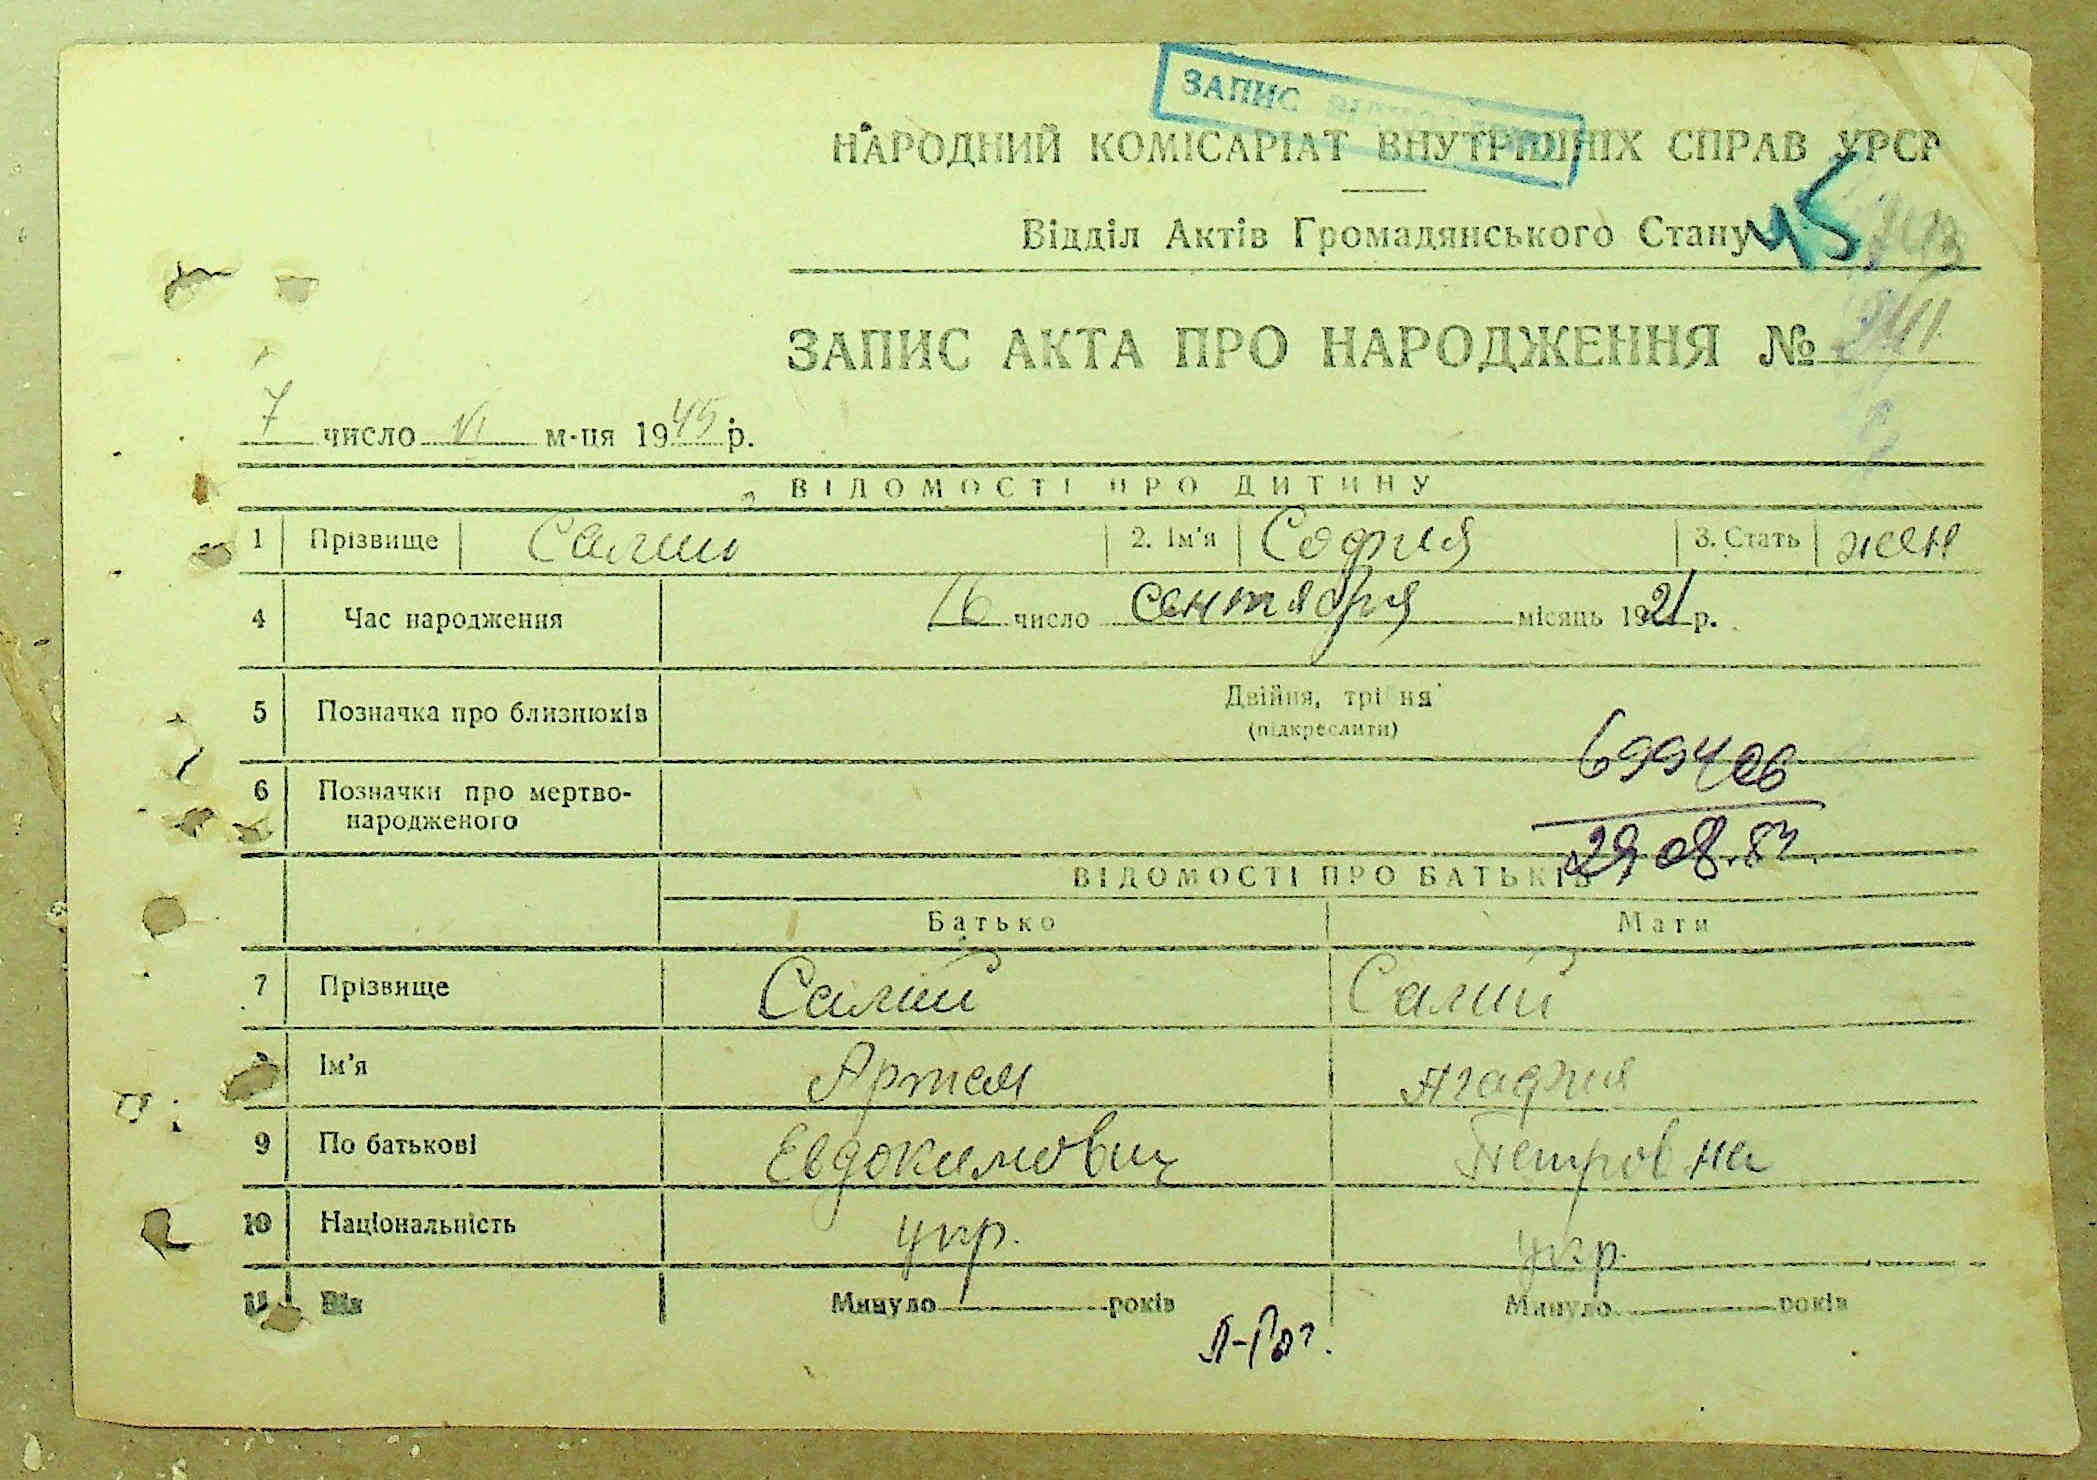 ЗАПИС
НАРОДНИЙ КОМІСАРІАТ ВНУТРІШНІХ СПРАВ УРСР
Відділ Актів Громадянського Стану
45
ЗАПИС АКТА ПРО НАРОДЖЕННЯ №
7 число VI м-ця 1945 р.
ВІДОМОСТІ ПРО ДИТИНУ
1 Прізвище Салий 2. Ім'я София 3. Стать жен
4 Час народження 16 число сентября місяць 1921 р.
5 Позначка про близнюків Двійня, трійня
(підкреслити)
699406
6 Позначки про мертво-
народженого
29.08.84.
ВІДОМОСТІ ПРО БАТЬКІВ
Батько Мати
7 Прізвище Салий Салий
Ім'я Артем Агафия
9 По батькові Евдокимович Петровна
10 Національність укр. укр.
11 Вік Минуло років Минуло років